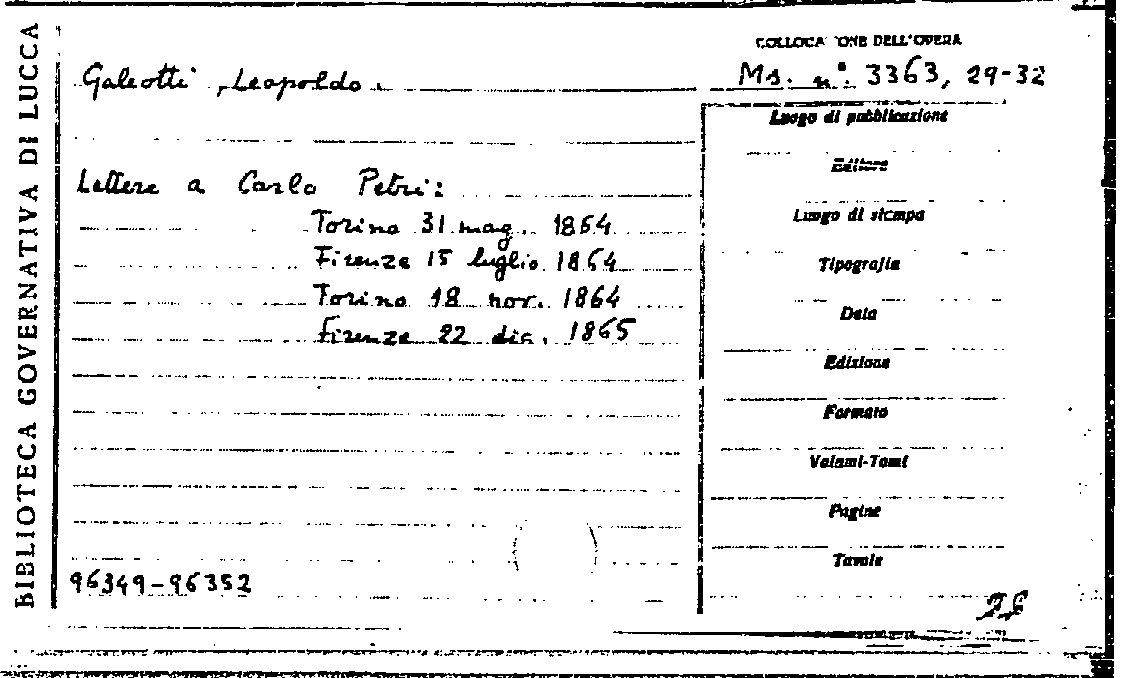 BIBLIOTECA GOVERNATIVA DI LUCCA
COLLOCA ONE DELL'OPERA
Galeotti, Leopoldo.
Ms. n°. 3363, 29-32
Lettere a Carlo Petri:
Torino 31 mag. 1864
Firenze 15 luglio 1864
Torino 18 nov. 1864
Firenze 22 dic. 1865
96349-96352
Luogo di pubblicazione
Editore
Luogo di stampa
Tipografia
Data
Edizione
Formato
Volumi-Tomi
Pagine
Tavole